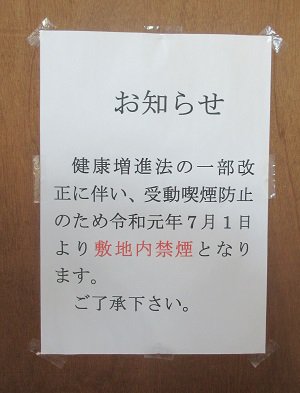 お知らせ
健康増進法の一部改
正に伴い、受動喫煙防止
のため令和元年７月１日
より敷地内禁煙となり
ます。
ご了承下さい。